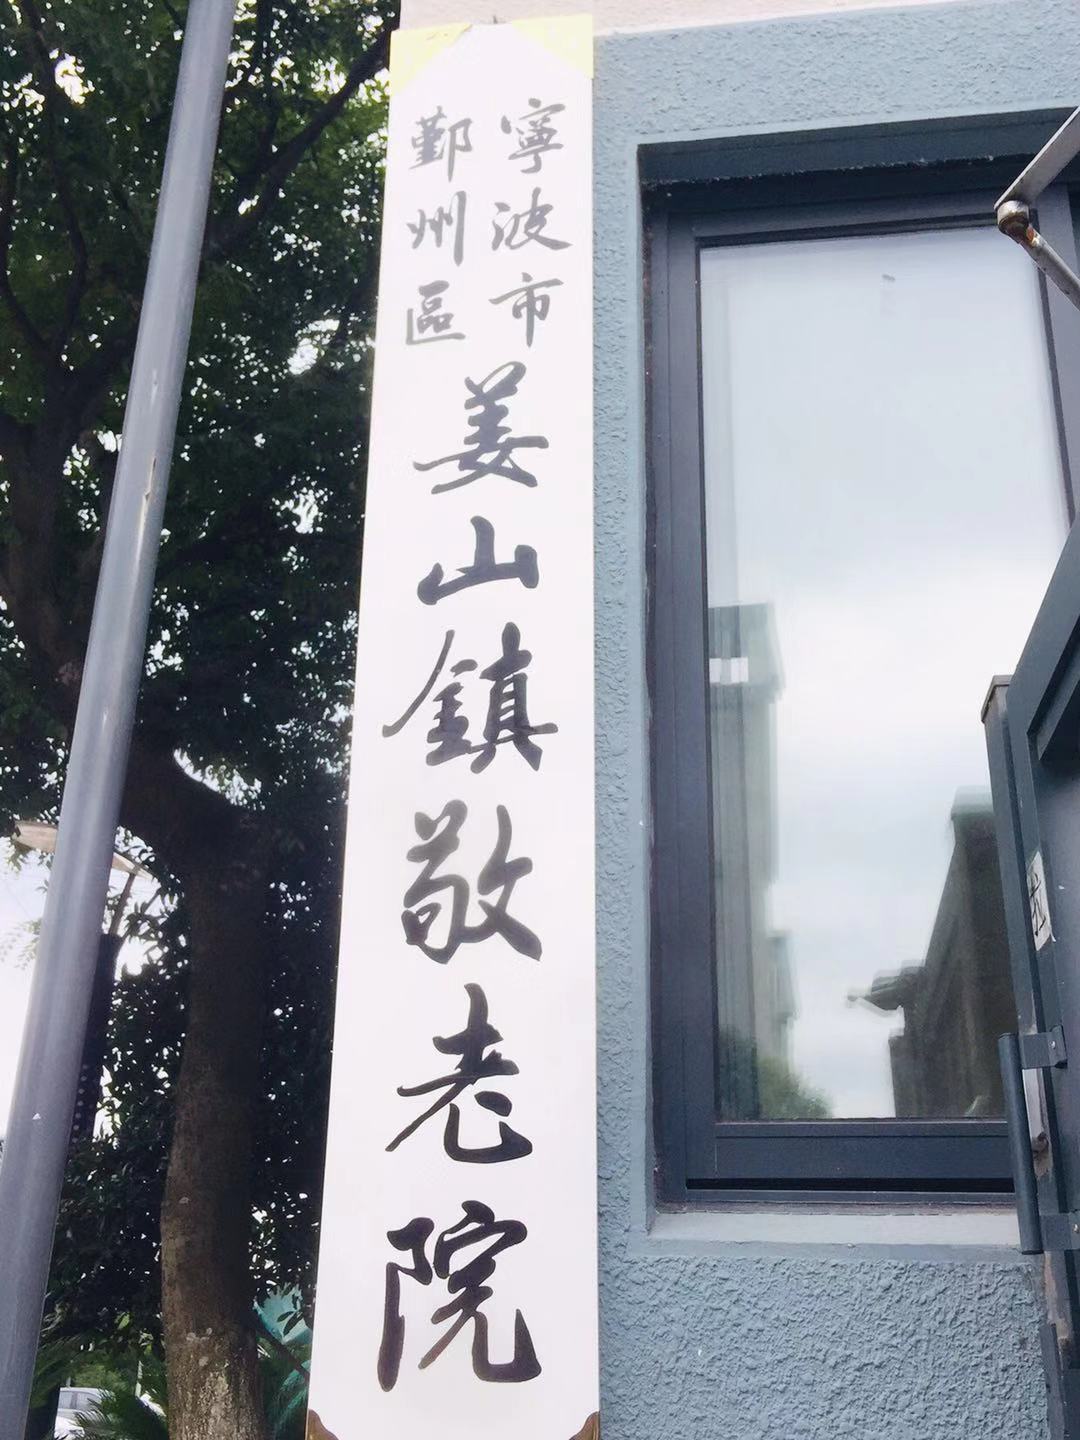 寧波市
鄞州區
姜山鎮敬老院
拉